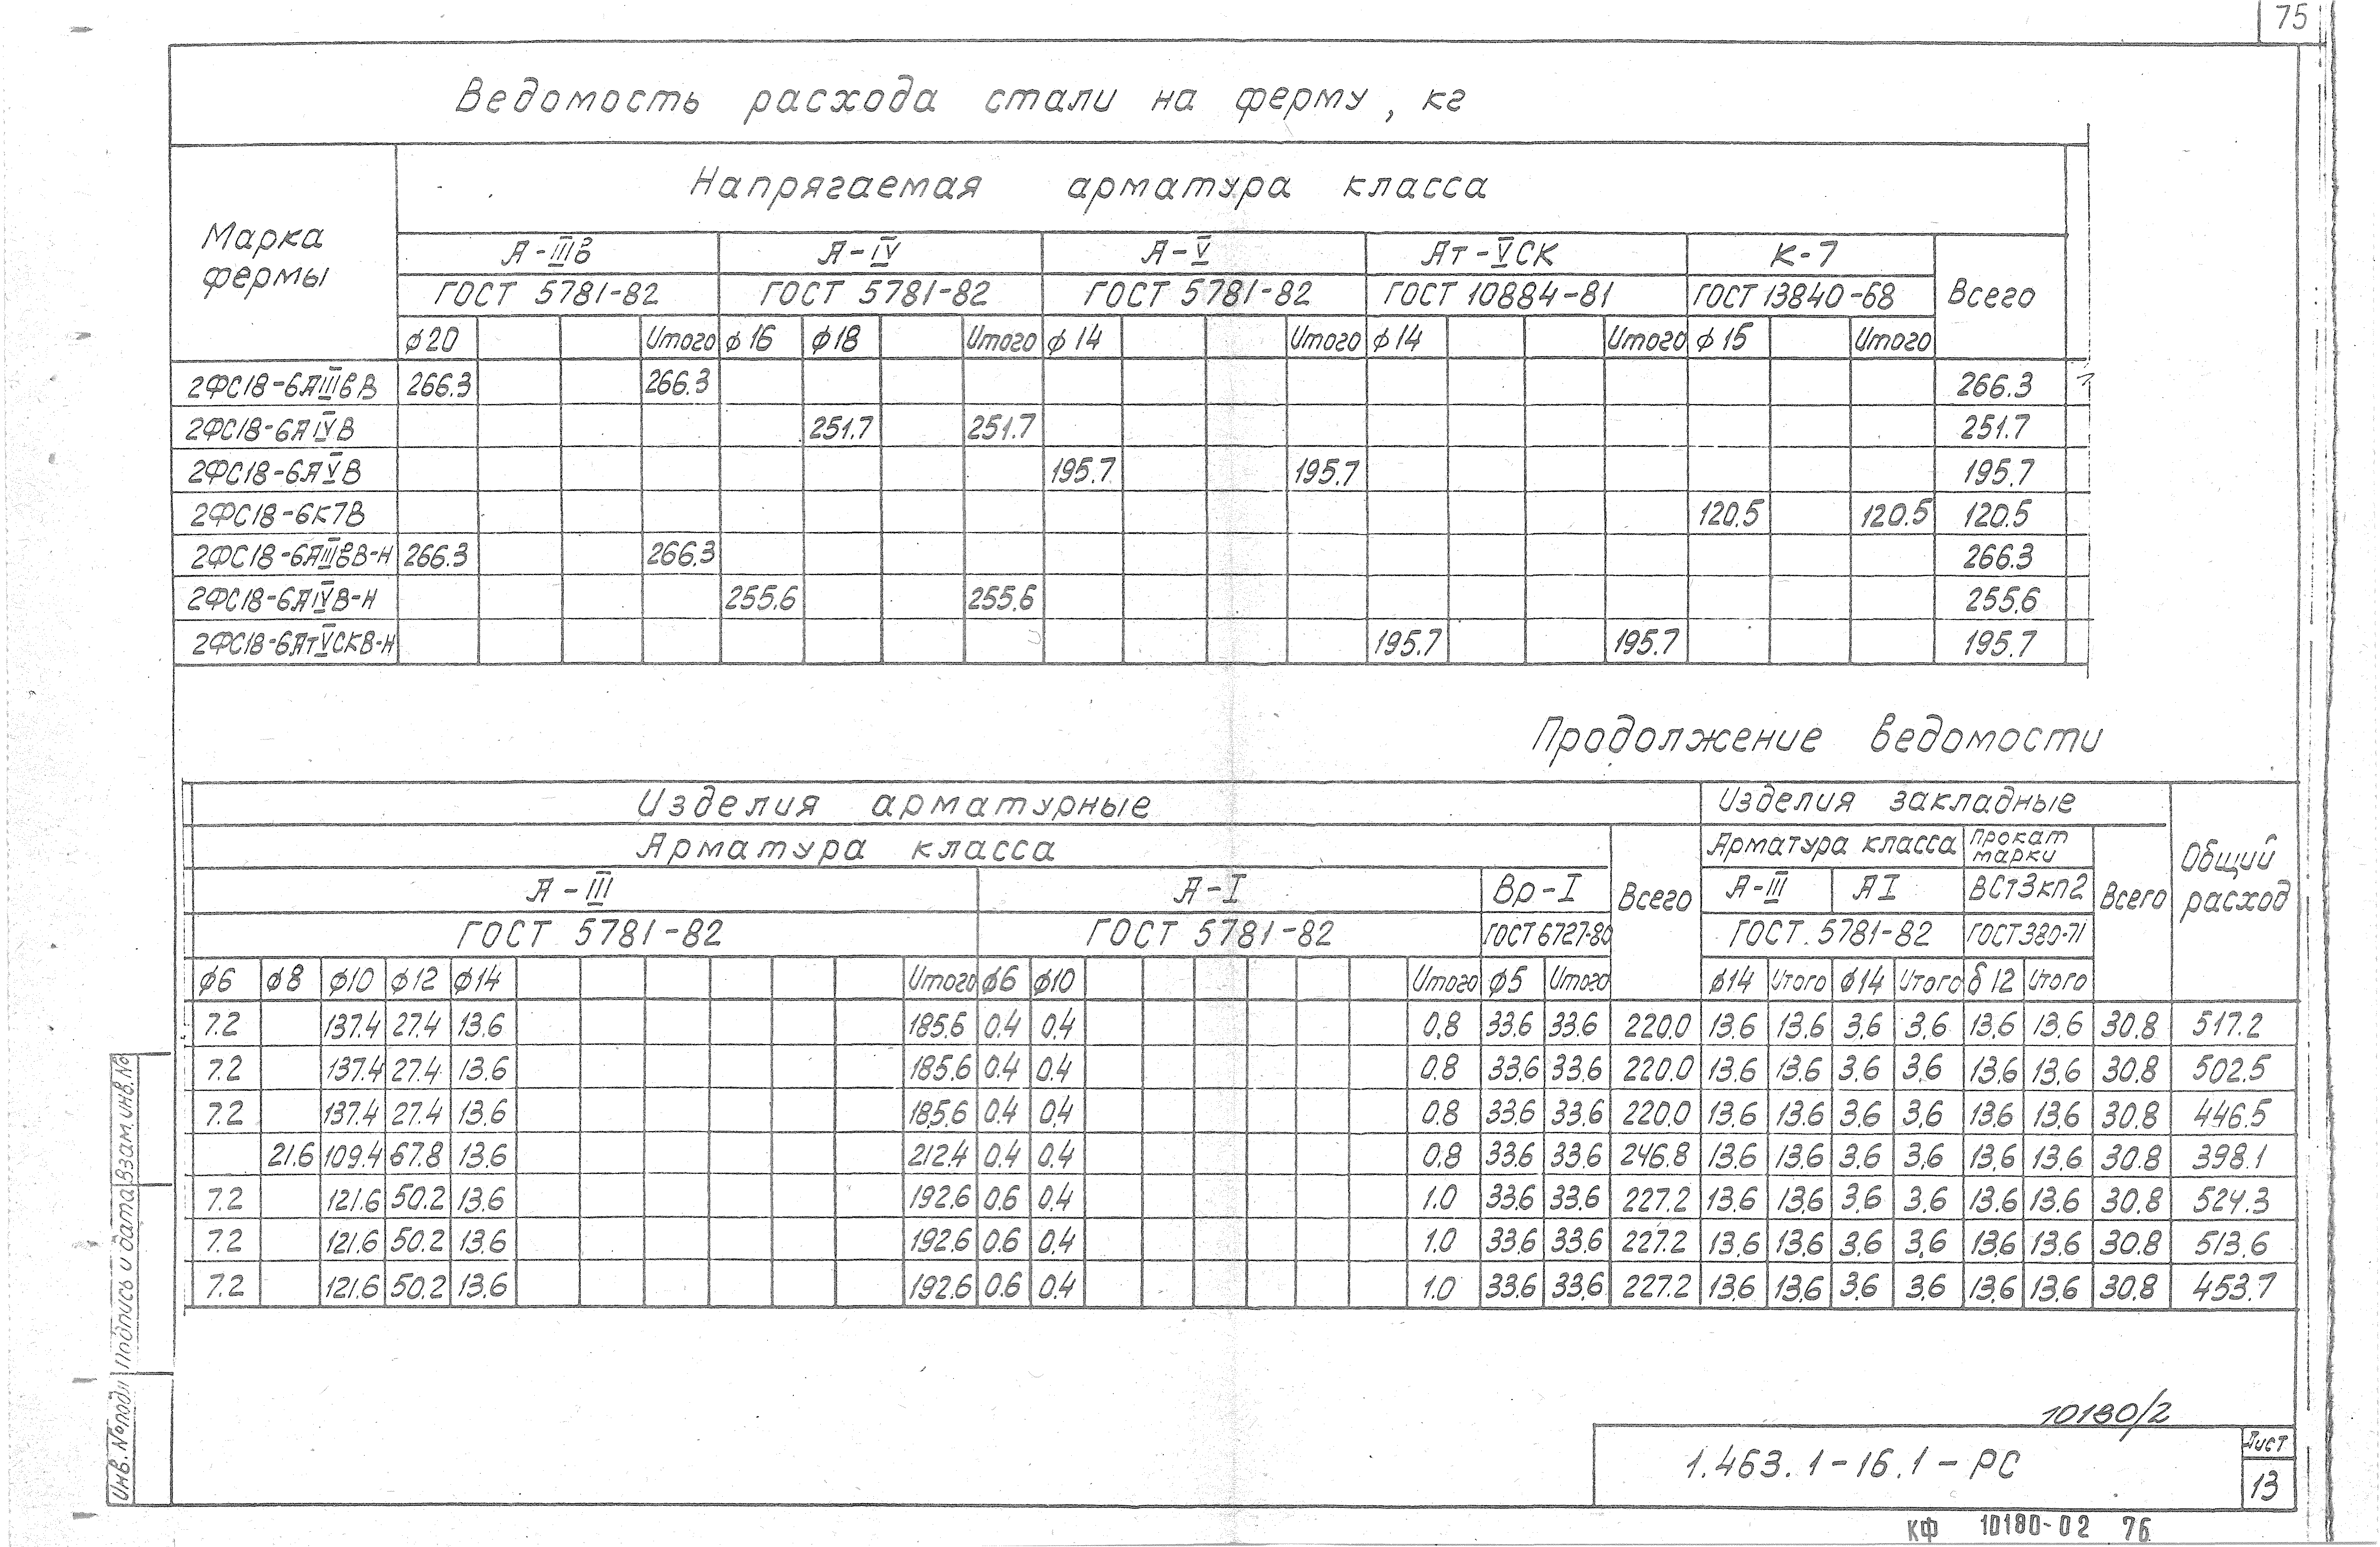 75
Ведомость расхода стали на ферму, кг
Марка фермы
Напрягаемая арматура класса
А-IIIв А-IV А-V Ат-VСК К-7 Всего
ГОСТ 5781-82 ГОСТ 5781-82 ГОСТ 5781-82 ГОСТ 10884-81 ГОСТ 13840-68
ф20 Итого ф16 ф18 Итого ф14 Итого ф14 Итого ф15 Итого
2ФС18-6АIIIвВ 266.3 266.3 266.3
2ФС18-6АIVВ 251.7 251.7 251.7
2ФС18-6АVВ 195.7 195.7 195.7
2ФС18-6К7В 120.5 120.5 120.5
2ФС18-6АIIIвВ-Н 266.3 266.3 266.3
2ФС18-6АIVВ-Н 255.6 255.6 255.6
2ФС18-6АтVСКВ-Н 195.7 195.7 195.7
Продолжение ведомости
Изделия арматурные Изделия закладные Общий расход
Арматура класса Всего Арматура класса Прокат марки Всего
А-III А-I Вр-I А-III АI ВСт3кп2
ГОСТ 5781-82 ГОСТ 5781-82 ГОСТ 6727-80 ГОСТ. 5781-82 ГОСТ 380-71
ф6 ф8 ф10 ф12 ф14 Итого ф6 ф10 Итого ф5 Итого ф14 Итого ф14 Итого δ12 Итого
7.2 137.4 27.4 13.6 185.6 0.4 0.4 0.8 33.6 33.6 220.0 13.6 13.6 3.6 3.6 13.6 13.6 30.8 517.2
7.2 137.4 27.4 13.6 185.6 0.4 0.4 0.8 33.6 33.6 220.0 13.6 13.6 3.6 3.6 13.6 13.6 30.8 502.5
7.2 137.4 27.4 13.6 185.6 0.4 0.4 0.8 33.6 33.6 220.0 13.6 13.6 3.6 3.6 13.6 13.6 30.8 446.5
21.6 109.4 67.8 13.6 212.4 0.4 0.4 0.8 33.6 33.6 246.8 13.6 13.6 3.6 3.6 13.6 13.6 30.8 398.1
7.2 121.6 50.2 13.6 192.6 0.6 0.4 1.0 33.6 33.6 227.2 13.6 13.6 3.6 3.6 13.6 13.6 30.8 524.3
7.2 121.6 50.2 13.6 192.6 0.6 0.4 1.0 33.6 33.6 227.2 13.6 13.6 3.6 3.6 13.6 13.6 30.8 513.6
7.2 121.6 50.2 13.6 192.6 0.6 0.4 1.0 33.6 33.6 227.2 13.6 13.6 3.6 3.6 13.6 13.6 30.8 453.7
Инв. №подл Подпись и дата Взам. инв. №
10180/2
1.463.1-16.1-РС
Лист
13
КФ 10180-02 76